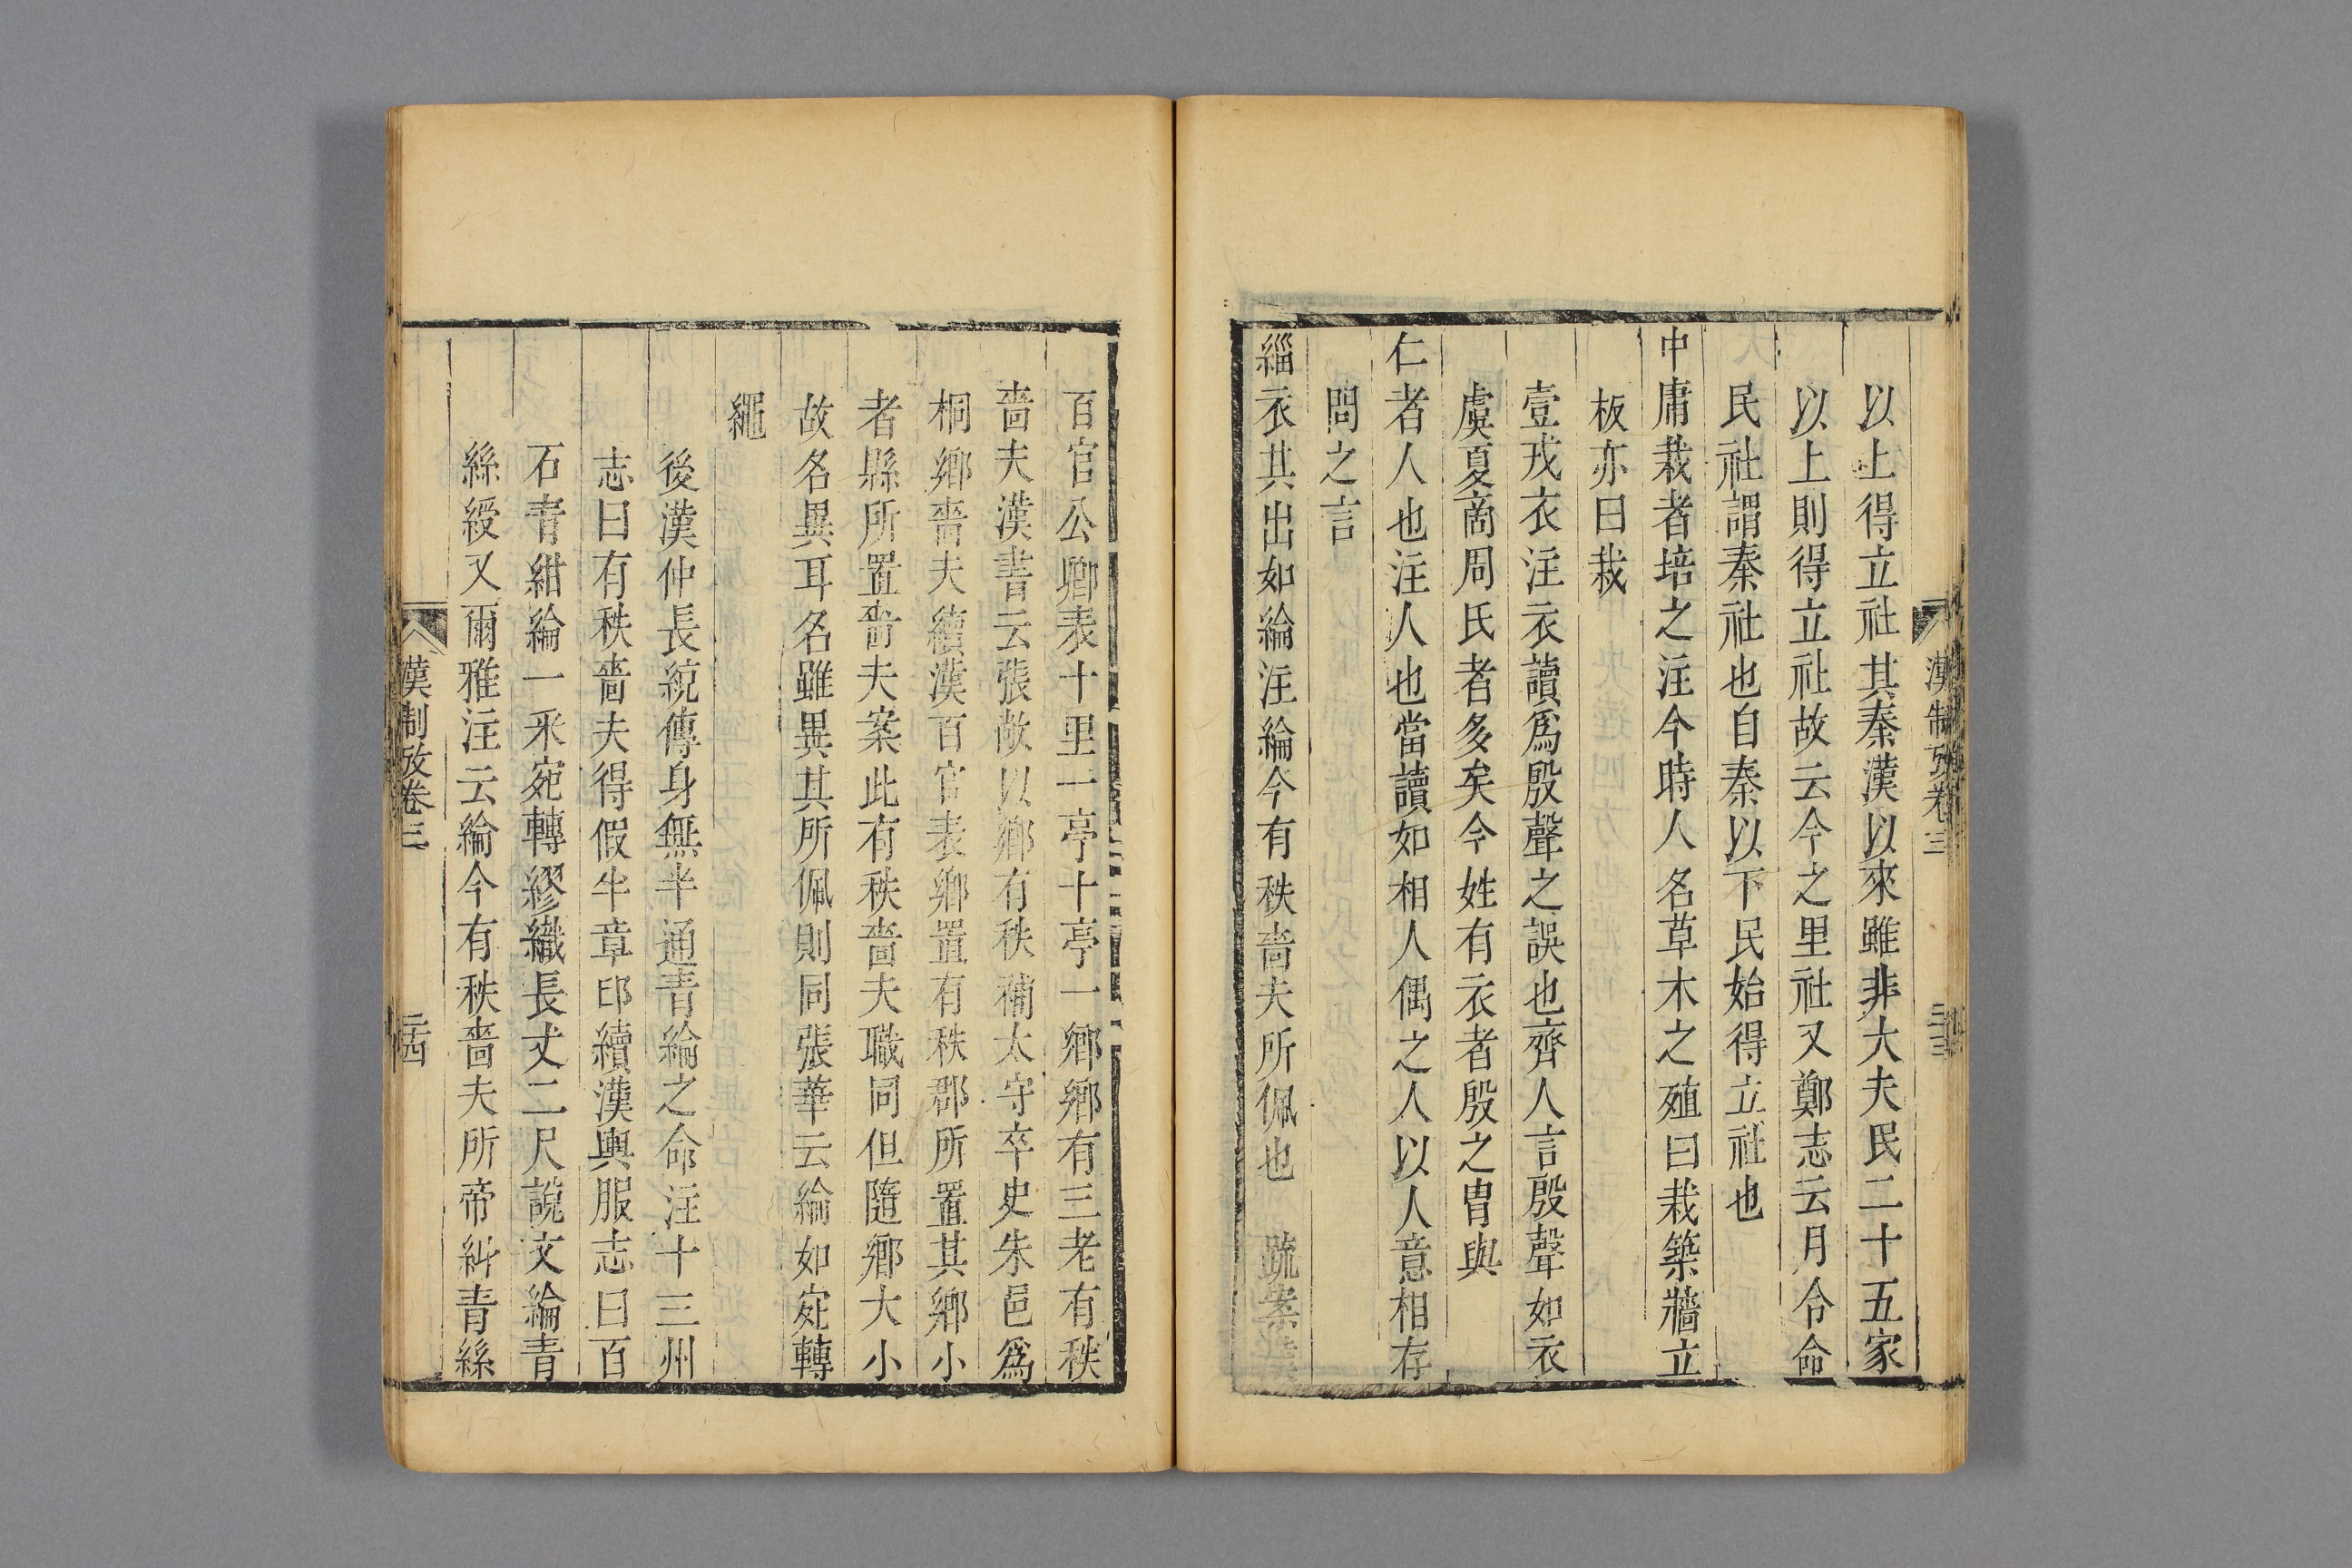 漢制攷卷三
二十三
以上得立社其秦漢以來雖非大夫民二十五家
以上則得立社故云今之里社又鄭志云月令命
民社謂秦社也自秦以下民始得立社也
中庸栽者培之注今時人名草木之殖曰栽築牆立
板亦曰栽
壹戎衣注衣讀爲殷聲之誤也齊人言殷聲如衣
虞夏商周氏者多矣今姓有衣者殷之胄與
仁者人也注人也當讀如相人偶之人以人意相存
問之言
緇衣其出如綸注綸今有秩嗇夫所佩也 疏案漢
百官公卿表十里一亭十亭一鄉鄉有三老有秩
嗇夫漢書云張敞以鄉有秩補太守卒史朱邑爲
桐鄉嗇夫續漢百官表鄉置有秩郡所置其鄉小
者縣所置嗇夫案此有秩嗇夫職同但隨鄉大小
故名異耳名雖異其所佩則同張華云綸如宛轉
繩
後漢仲長統傳身無半通青綸之命注十三州
志曰有秩嗇夫得假半章印續漢輿服志曰百
石青紺綸一采宛轉繆織長丈二尺說文綸青
絲綬又爾雅注云綸今有秩嗇夫所帶糾青絲
漢制攷卷三
二十四